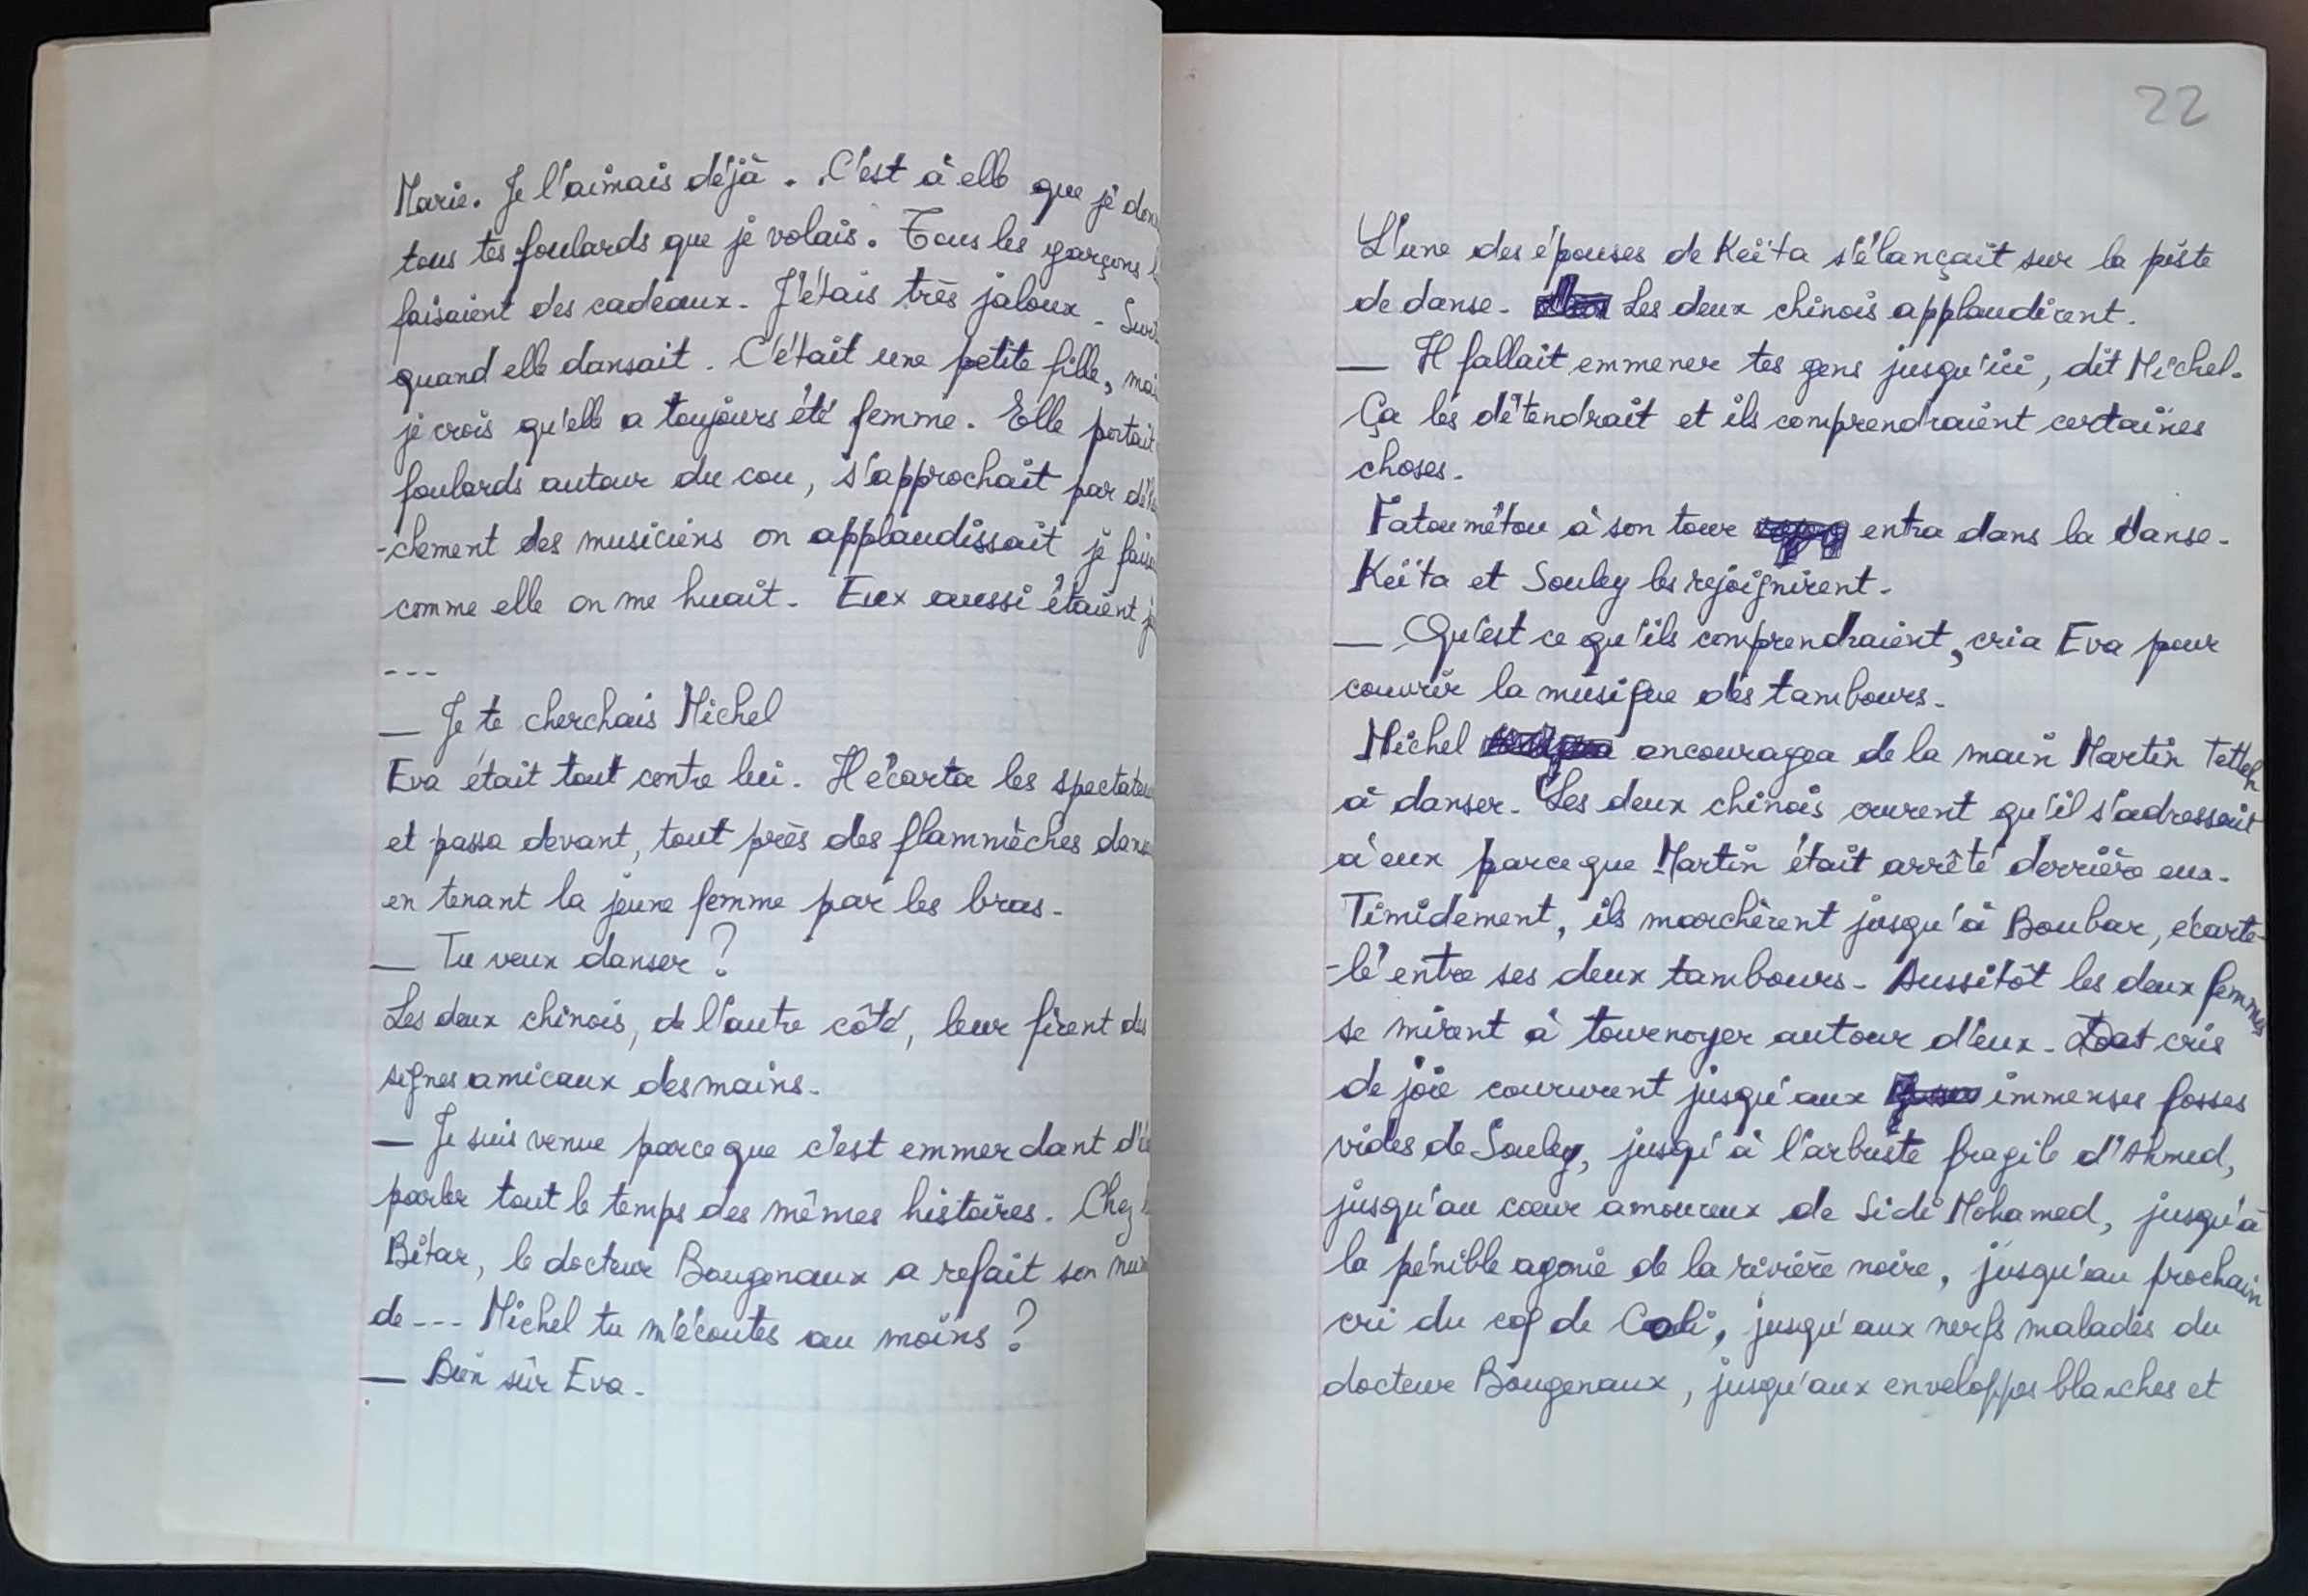 Marie. Je l'aimais déjà. C'est à elle que je
tous tes foulards que je volais. Tous les garçons
faisaient des cadeaux. J'étais très jaloux.
quand elle dansait. C'était une petite fille,
je crois qu'elle a toujours été femme. Elle portait
foulards autour du cou, s'approchait par
-chement des musiciens on applaudissait je
comme elle on me huait. Eux aussi étaient
---
— Je te cherchais Michel
Eva était tout contre lui. Il écarta les
et passa devant, tout près des flammèches
en tenant la jeune femme par les bras.
— Tu veux danser ?
Les deux chinois, de l'autre côté, leur firent des
signes amicaux des mains.
— Je suis venue parce que c'est emmerdant
parler tout le temps des mêmes histoires. Chez
Bitar, le docteur Bougenaux a refait son
de --- Michel tu m'écoutes au moins ?
— Bien sûr Eva.
22
L'une des épouses de Keïta s'élançait sur la piste
de danse. Les deux chinois applaudirent.
— Il fallait emmener tes gens jusqu'ici, dit Michel.
Ça les détendrait et ils comprendraient certaines
choses.
Fatoumétou à son tour entra dans la danse.
Keïta et Souley les rejoignirent.
— Qu'est ce qu'ils comprendraient, cria Eva pour
couvrir la musique des tambours.
Michel encouragea de la main Martin Tetteh
à danser. Les deux chinois crurent qu'il s'adressait
à eux parce que Martin était arrêté derrière eux.
Timidement, ils marchèrent jusqu'à Boubar, écarte-
-lé entre ses deux tambours. Aussitôt les deux femmes
se mirent à tournoyer autour d'eux. cris
de joie coururent jusqu'aux immenses fosses
vides de Souley, jusqu'à l'arbuste fragile d'Ahmed,
jusqu'au cœur amoureux de Sidi Mohamed, jusqu'à
la pénible agonie de la rivière noire, jusqu'au prochain
cri du coq de Coli, jusqu'aux nerfs malades du
docteur Bougenaux, jusqu'aux enveloppes blanches et